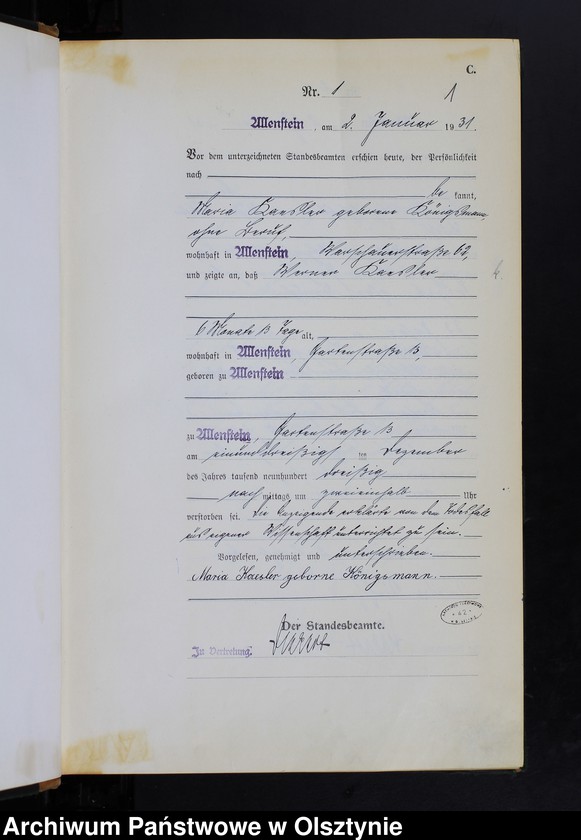 C.
Nr. 1
1
Allenstein, am 2. Januar 1931.
Vor dem unterzeichneten Standesbeamten erschien heute, der Persönlichkeit
nach
be kannt,
Maria Kaesler geborene Königsmann,
ohne Beruf,
wohnhaft in Allenstein, Warschauerstraße 62,
und zeigte an, daß Werner Kaesler
6 Monate 13 Tage alt,
wohnhaft in Allenstein, Gartenstraße 13,
geboren zu Allenstein
zu Allenstein, Gartenstraße 13
am einunddreißigsten des Dezember
des Jahres tausend neunhundert dreißig
nach mittags um zweieinhalb Uhr
verstorben sei. Die Anzeigende erklärte von dem Todesfall
aus eigener Wissenschaft unterrichtet zu sein.
Vorgelesen, genehmigt und unterschrieben.
Maria Kaesler geborne Königsmann.
Der Standesbeamte.
In Vertretung.
Archiwum Państwowe w Olsztynie